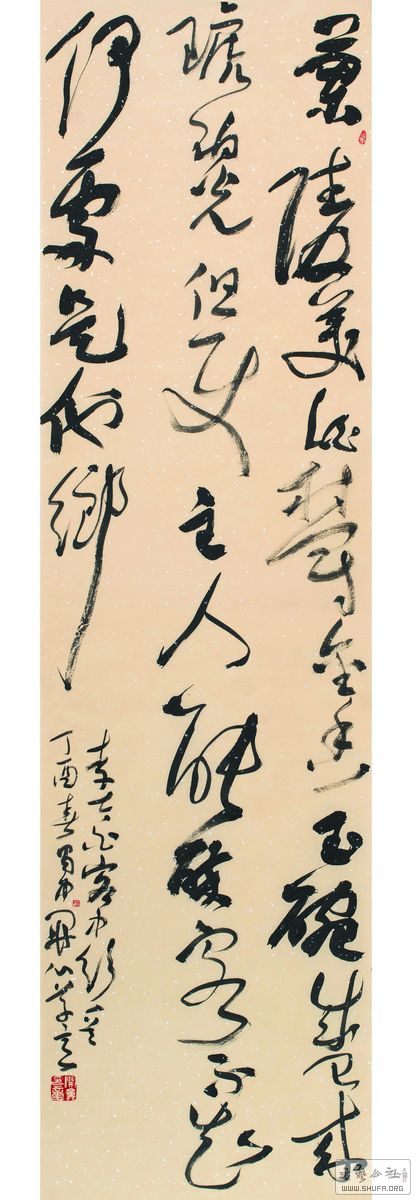 蘭陵美酒鬱金香玉碗盛来
琥珀光但使主人能醉客不知
何處是他鄉
李太白客中行
丁酉春蜀中
书艺公社
WWW.SHUFA.ORG